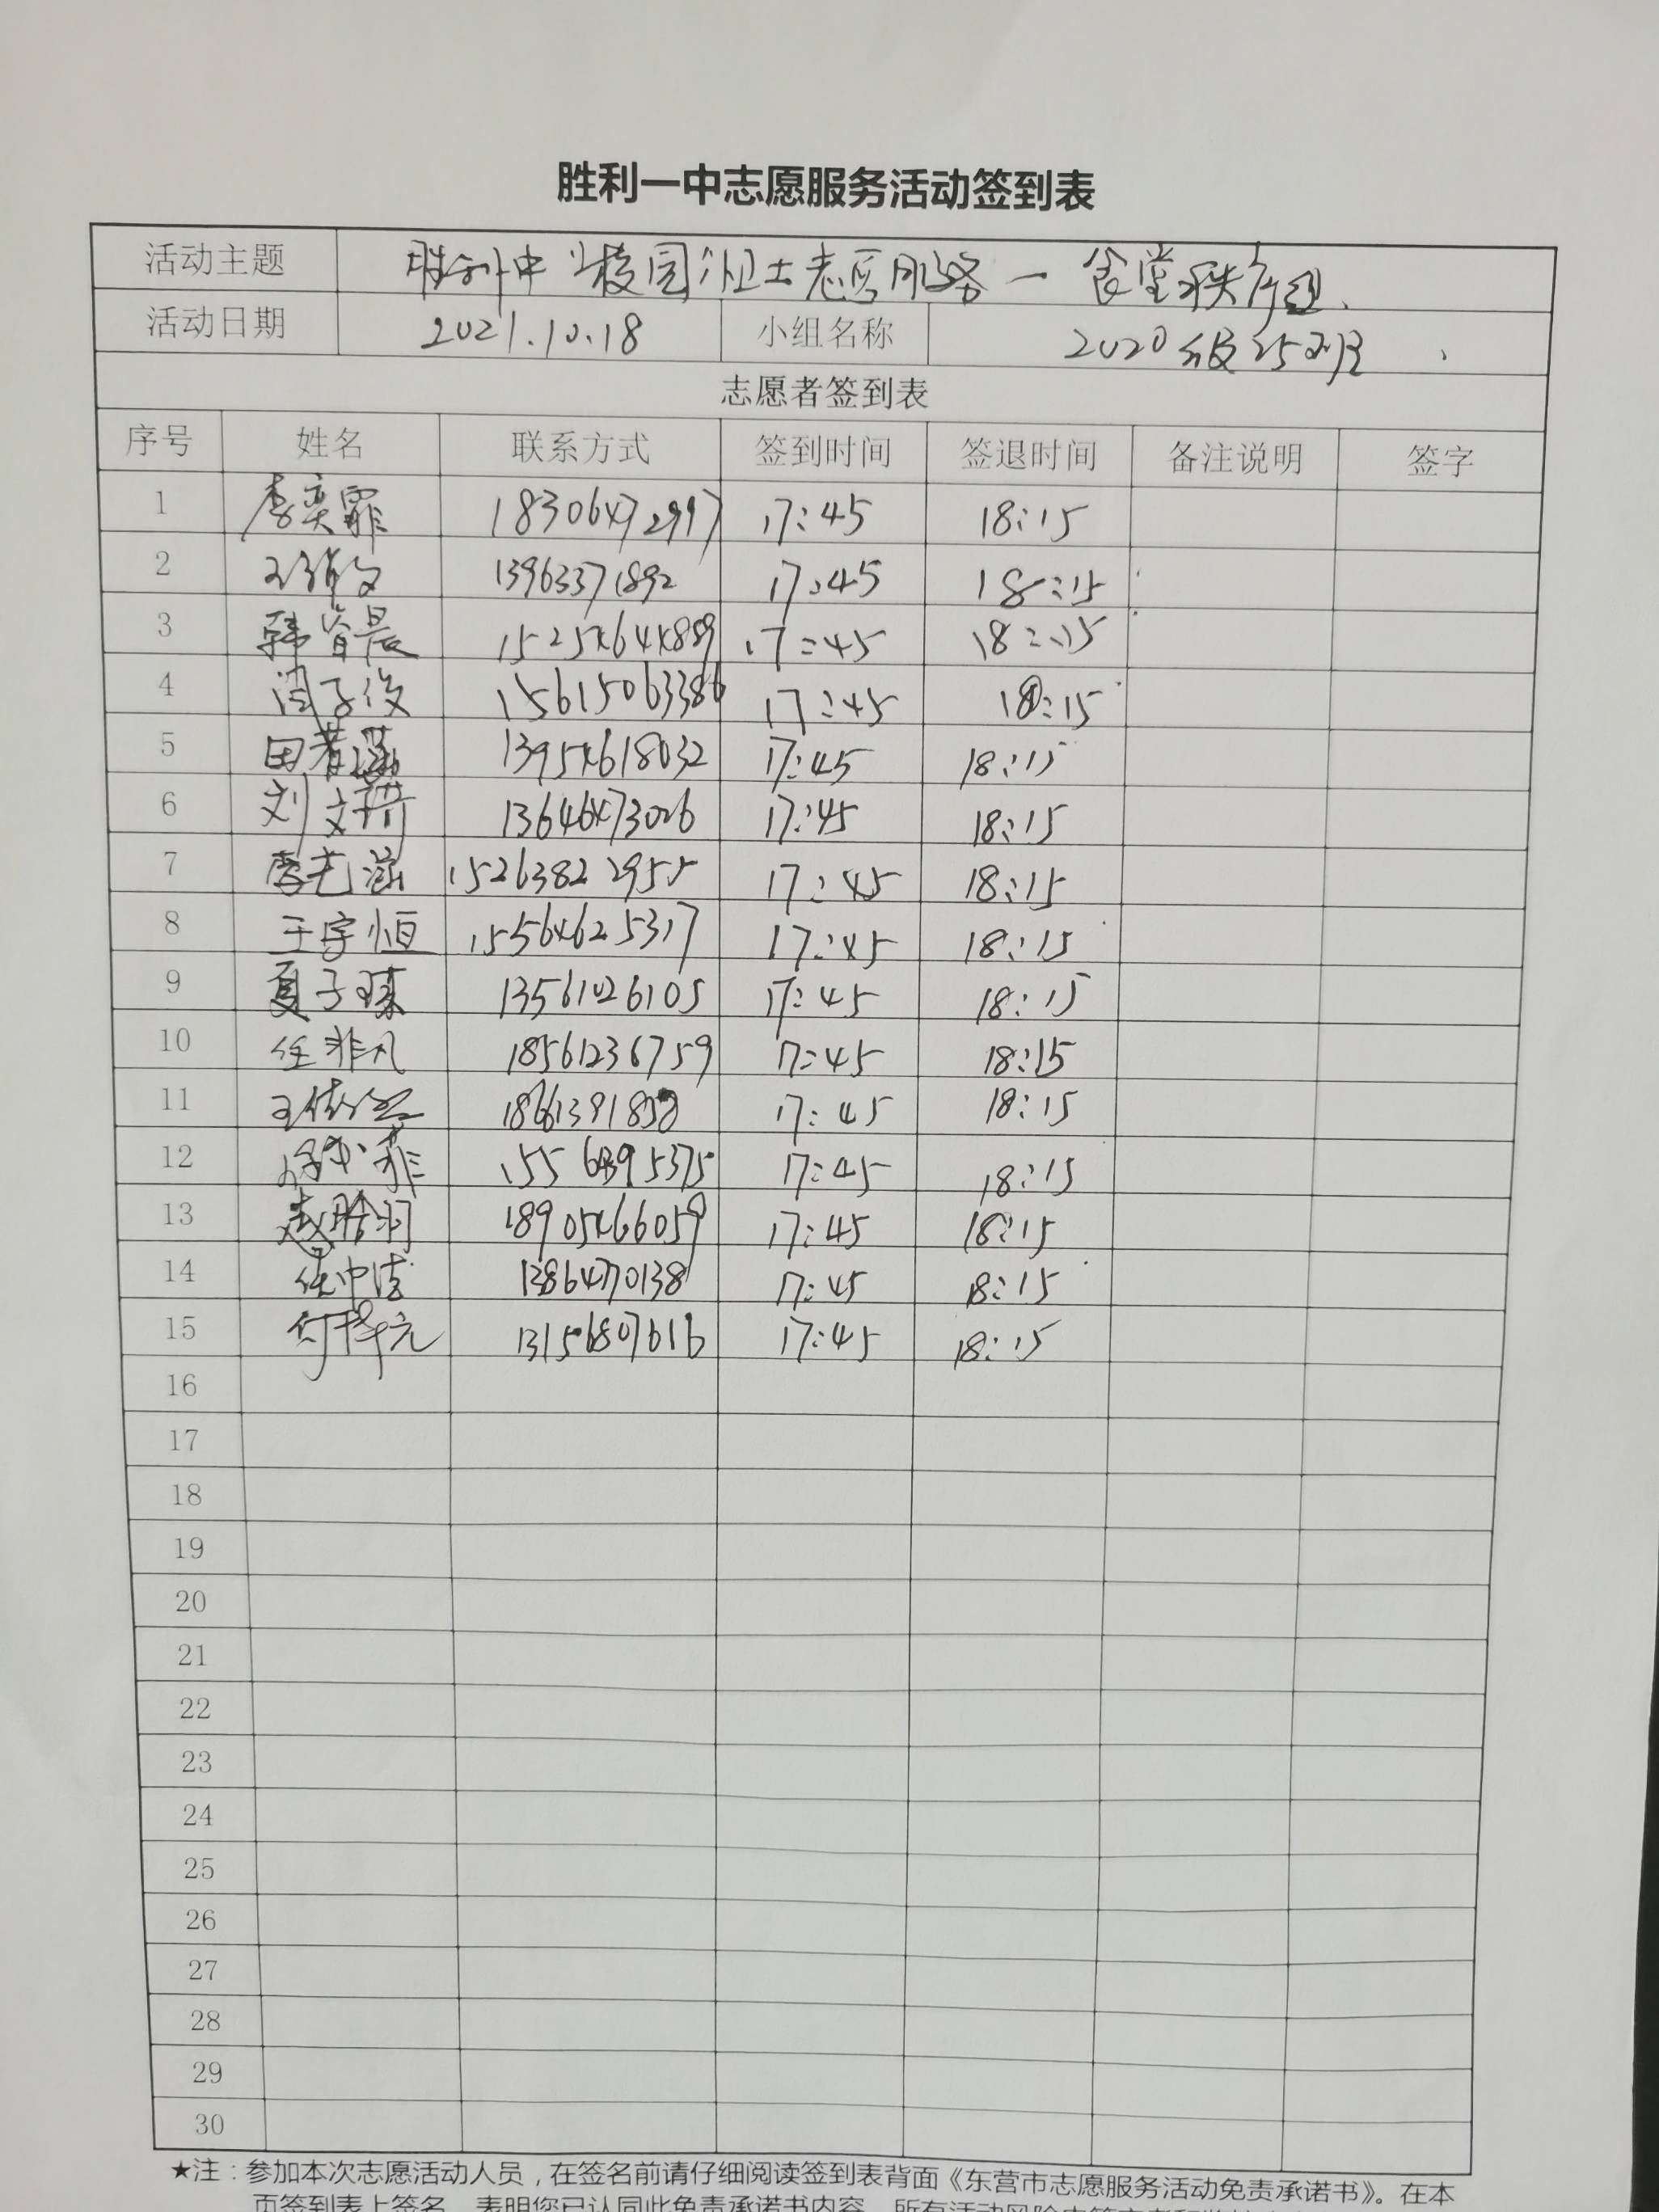 胜利一中志愿服务活动签到表
活动主题 胜利一中"校园卫士志愿服务一食堂秩序组
活动日期 2021.10.18 小组名称 2020级25班
志愿者签到表
序号 姓名 联系方式 签到时间 签退时间 备注说明 签字
1 李奕霏 18306472997 17:45 18:15
2 13963371892 17:45 18:15
3 韩睿晨 15254644889 17:45 18:15
4 闫子俊 15615063386 17:45 18:15
5 田蕙溪 13954618032 17:45 18:15
6 刘文琪 13646473026 17:45 18:15
7 李艺涵 15263822955 17:45 18:15
8 王宇恒 15564625317 17:45 18:15
9 夏子臻 13561026105 17:45 18:15
10 任非凡 18561236759 17:45 18:15
11 17:45 18:15
12 17:45 18:15
13 18905466059 17:45 18:15
14 13864770138 17:45 18:15
15 13156807616 17:45 18:15
16
17
18
19
20
21
22
23
24
25
26
27
28
29
30
★注：参加本次志愿活动人员，在签名前请仔细阅读签到表背面《东营市志愿服务活动免责承诺书》。在本
页签到表上签名，表明您已认同此免责承诺书内容，所有活动风险由签字者和监护